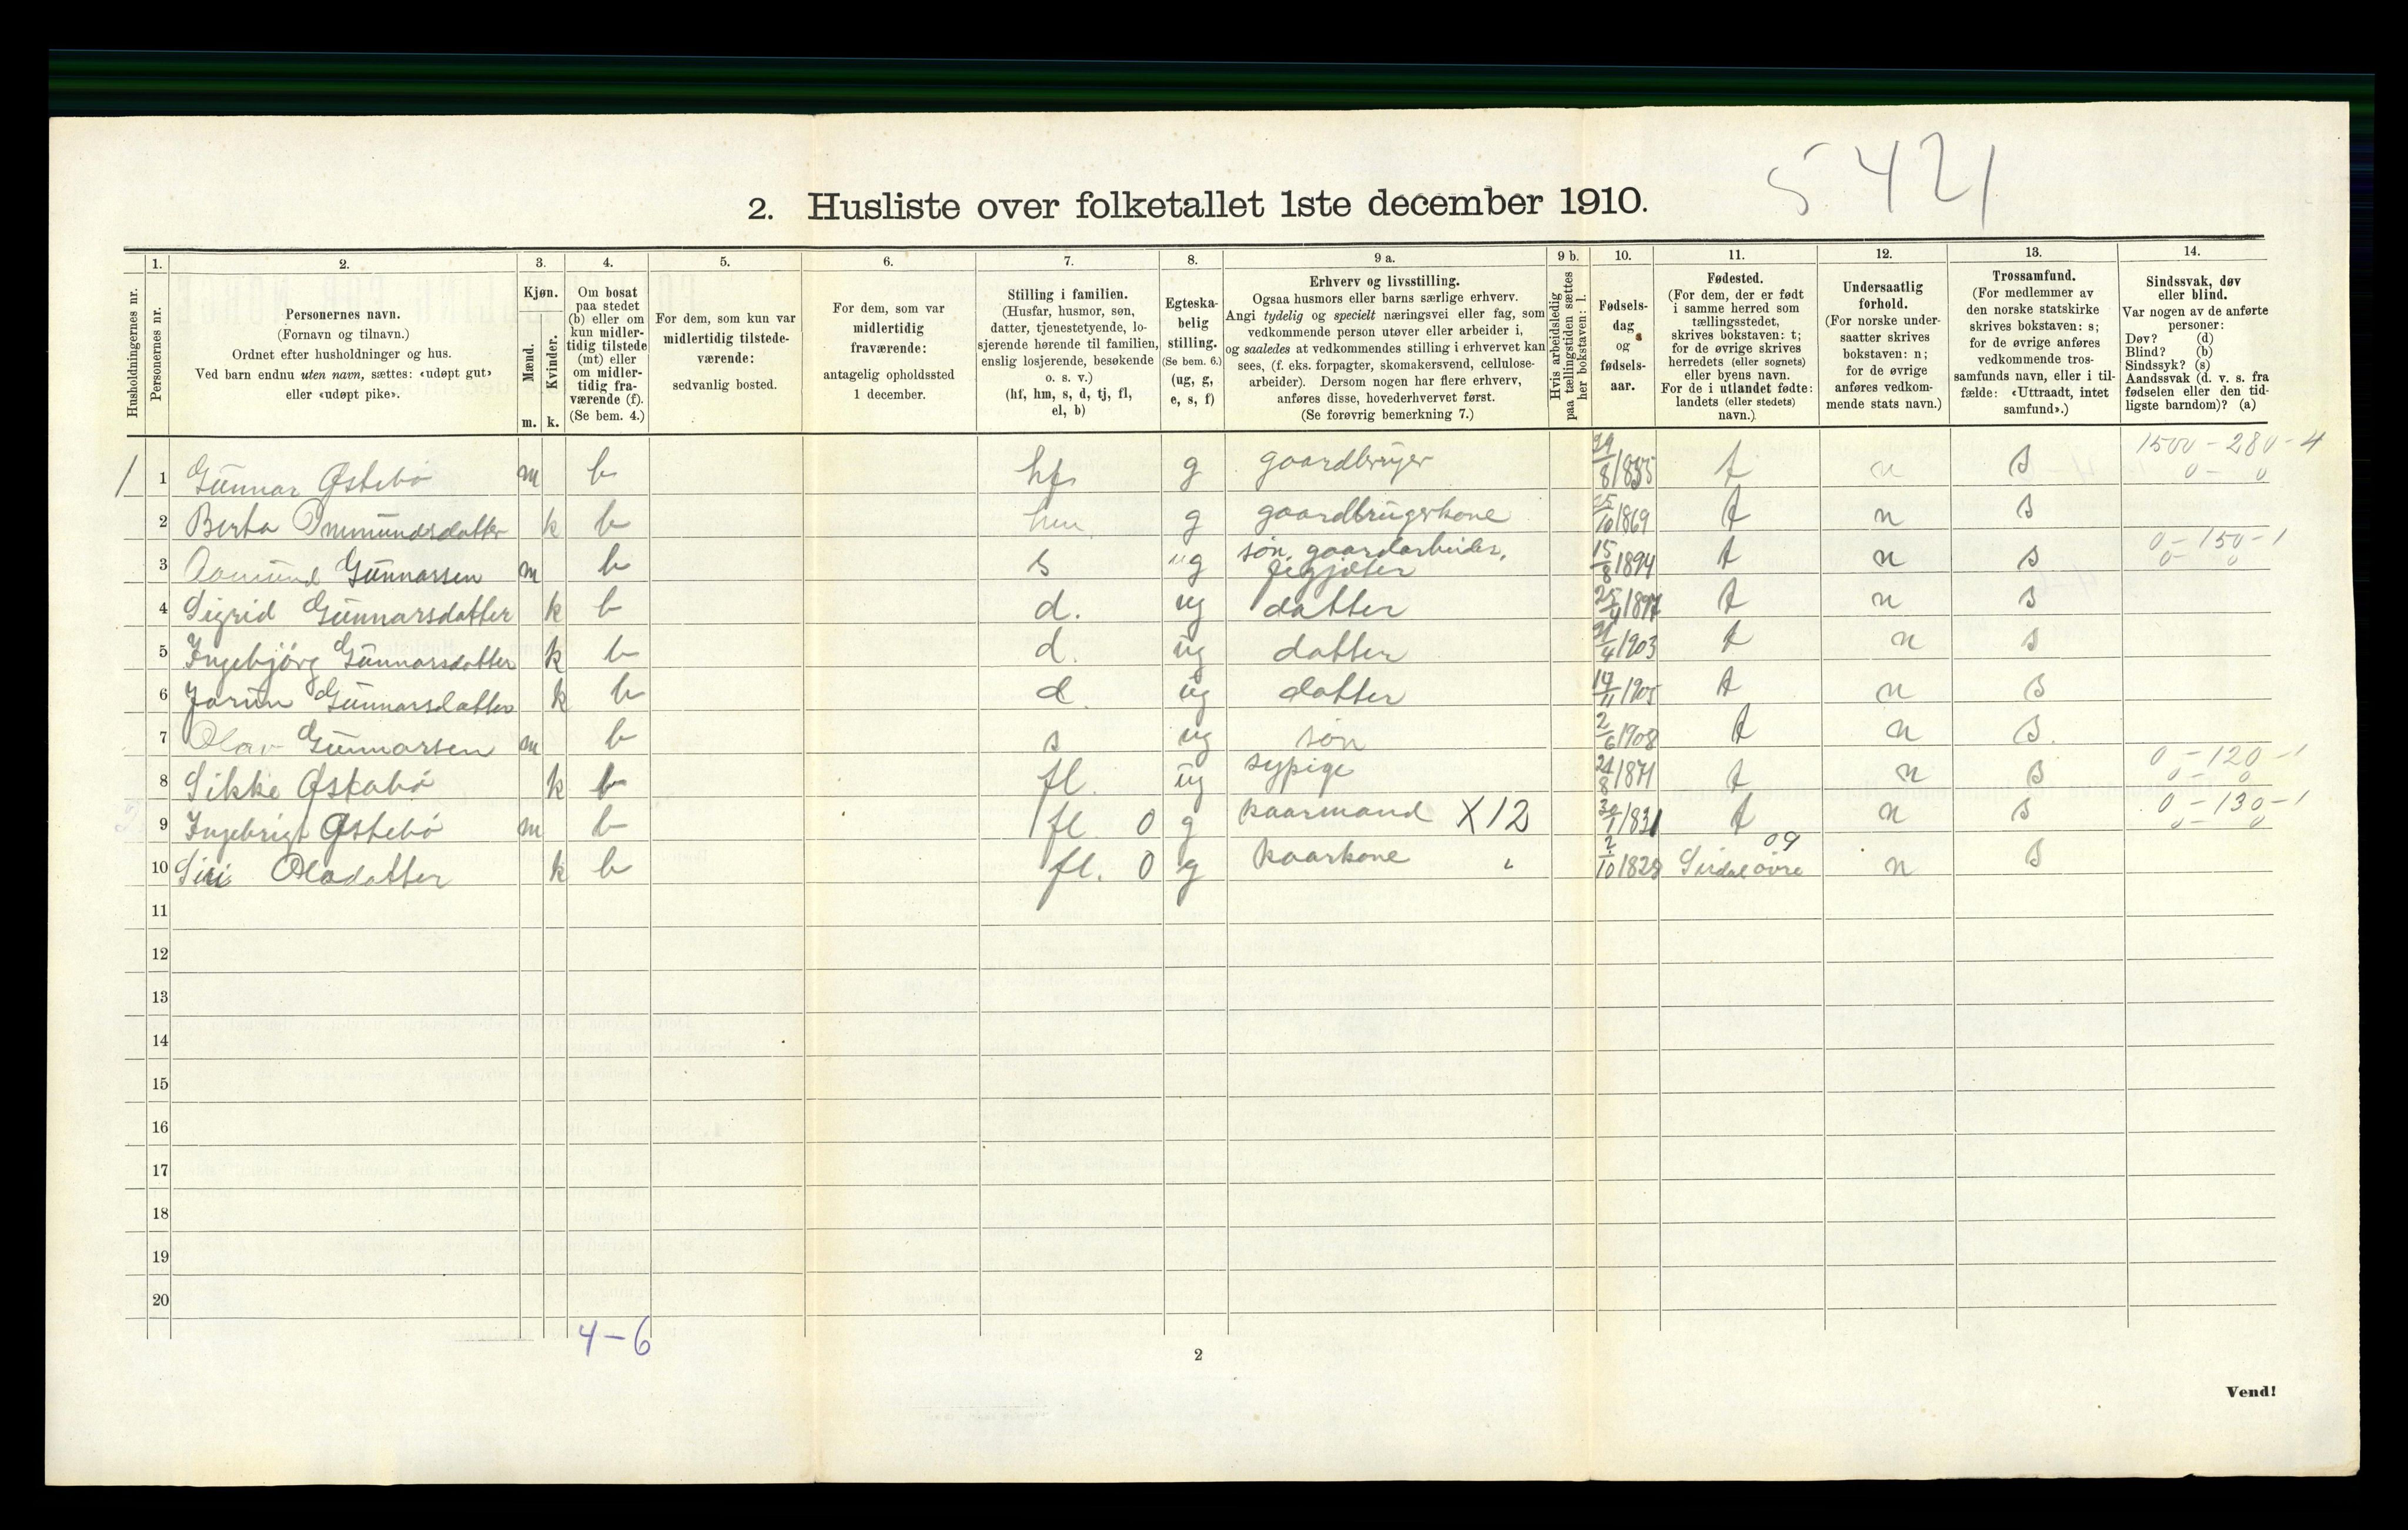 5 421
2. Husliste over folketallet 1ste december 1910.
Husholdningernes nr.
1.
Personernes nr.
2.
Personernes navn.
(Fornavn og tilnavn.)
Ordnet efter husholdninger og hus.
Ved barn endnu uten navn, sættes: «udøpt gut»
eller «udøpt pike».
3.
Kjøn.
Mænd.
Kvinder.
m. k.
4.
Om bosat
paa stedet
(b) eller om
kun midler-
tidig tilstede
(mt) eller
om midler-
tidig fra-
værende (f).
(Se bem. 4.)
5.
For dem, som kun var
midlertidig tilstede-
værende:
sedvanlig bosted.
6.
For dem, som var
midlertidig
fraværende:
antagelig opholdssted
1 december.
7.
Stilling i familien.
(Husfar, husmor, søn,
datter, tjenestetyende, lo-
sjerende hørende til familien,
enslig losjerende, besøkende
o. s. v.)
(hf, hm, s, d, tj, fl,
el, b)
8.
Egteska-
belig
stilling.
(Se bem. 6.)
(ug, g,
e, s, f)
9 a.
Erhverv og livsstilling.
Ogsaa husmors eller barns særlige erhverv.
Angi tydelig og specielt næringsvei eller fag, som
vedkommende person utøver eller arbeider i,
og saaledes at vedkommendes stilling i erhvervet kan
sees, (f. eks. forpagter, skomakersvend, cellulose-
arbeider). Dersom nogen har flere erhverv,
anføres disse, hovederhvervet først.
(Se forøvrig bemerkning 7.)
9 b.
Hvis arbeidsledig
paa tællingstiden sættes
her bokstaven: l.
10.
Fødsels-
dag
og
fødsels-
aar.
11.
Fødested.
(For dem, der er født
i samme herred som
tællingsstedet,
skrives bokstaven: t;
for de øvrige skrives
herredets (eller sognets)
eller byens navn.
For de i utlandet fødte:
landets (eller stedets)
navn.)
12.
Undersaatlig
forhold.
(For norske under-
saatter skrives
bokstaven: n;
for de øvrige
anføres vedkom-
mende stats navn.)
13.
Trossamfund.
(For medlemmer av
den norske statskirke
skrives bokstaven: s;
for de øvrige anføres
vedkommende tros-
samfunds navn, eller i til-
fælde: «Uttraadt, intet
samfund».)
14.
Sindssvak, døv
eller blind.
Var nogen av de anførte
personer:
Døv? (d)
Blind? (b)
Sindssyk? (s)
Aandssvak (d. v. s. fra
fødselen eller den tid-
ligste barndom)? (a)
1500 - 280 - 4
1 1 Gunnar Østebø m b hf g gaardbruger t n s 0 - 0
2 Berta k b hm g gaardbrugerkone 25/10 1869 t n s
søn, gaardarbeider, 0 - 150 - 1
3 Aamund Gunnarsen m b s ug 15/8 1894 t n s 0 - 0
4 Sigrid Gunnarsdatter k b d. ug datter 25/4 1897 t n s
5 Ingebjörg Gunnarsdatter k b d. ug datter 1903 t n s
6 Jorun Gunnarsdatter k b d. ug datter 1905 t n s
7 Olav Gunnarsen m b s ug søn 2/6 1908 t n s.
0 - 120 - 1
8 Sikke Østabø k b fl. ug sypige 1871 t n s 0 - 0
0 - 130 - 1
9 Ingebrigt Østebø m b fl 0 g kaarmand X12 30/1 1831 t n s 0 - 0
09
10 Siri Oladatter k b fl. 0 g kaarkone " 2/10 1828 Sirdal øvre n s
11
12
13
14
15
16
17
18
19
20
4-6
2
Vend!